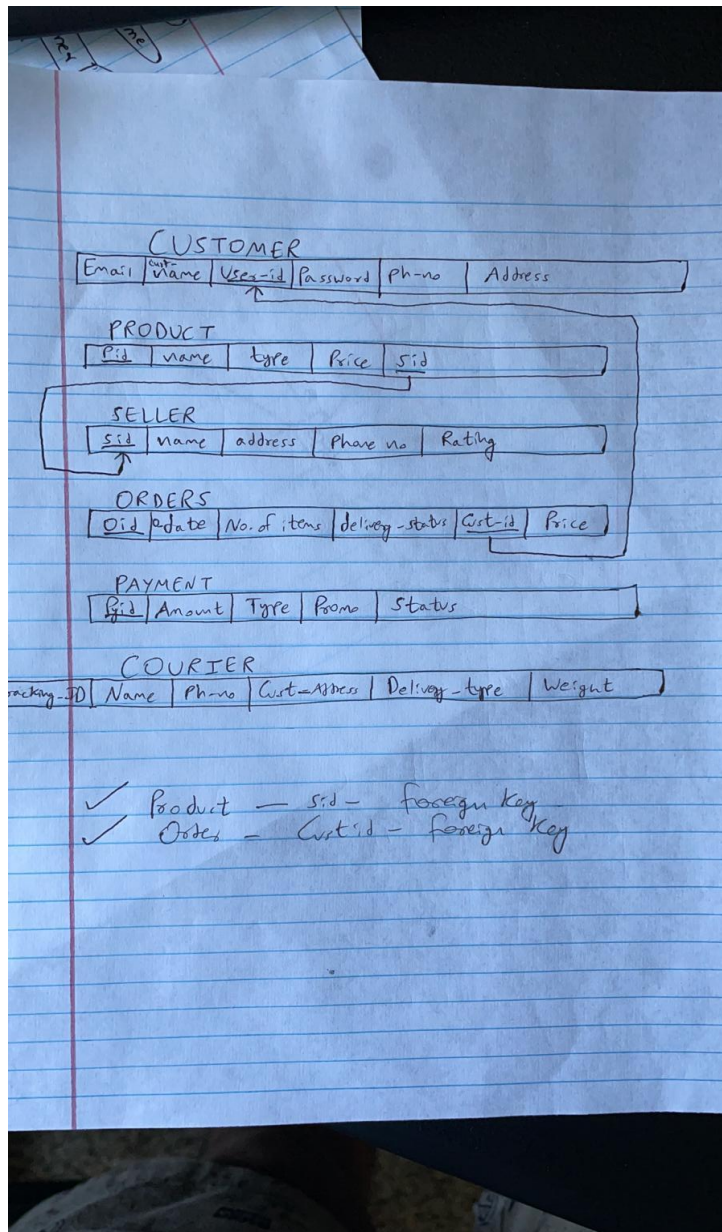 me
CUSTOMER
Email | Cust-name | User-id | Password | Ph-no | Address
PRODUCT
Pid | name | type | Price | Sid
SELLER
Sid | name | address | Phone no | Rating
ORDERS
Oid | o-date | No. of items | delivery-status | Cust-id | Price
PAYMENT
Pyid | Amount | Type | Promo | Status
COURIER
racking-ID | Name | Ph-no | Cust-Address | Delivery-type | Weight
✓ Product — Sid — foreign key
✓ Order — Custid — foreign key